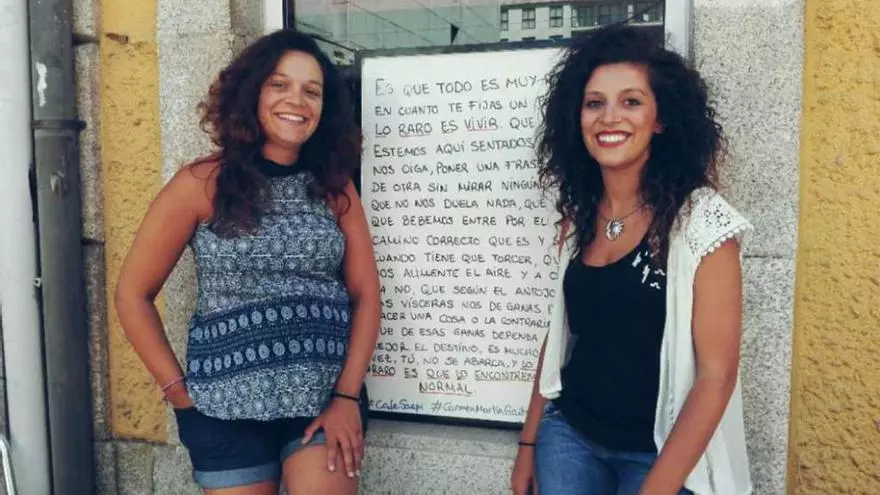 ES QUE TODO ES MUY
EN CUANTO TE FIJAS UN
LO RARO ES VIVIR. QUE
ESTEMOS AQUÍ SENTADOS
NOS OIGA, PONER UNA FRAS
DE OTRA SIN MIRAR NINGÚN
QUE NO NOS DUELA NADA, QUE
QUE BEBEMOS ENTRE POR EL
CAMINO CORRECTO QUE ES Y
CUANDO TIENE QUE TORCER, QU
NOS ALIMENTE EL AIRE Y A
YA NO, QUE SEGÚN EL ANTOJO
LAS VÍSCERAS NOS DE GANAS D
HACER UNA COSA O LA CONTRARIA
QUE DE ESAS GANAS DEPENDA
MEJOR EL DESTINO, ES MUCHO
VEZ, TÚ, NO SE ABARCA, Y LO
RARO ES QUE LO ENCONTREM
NORMAL
#CafeSagi #CarmenMartínGaite